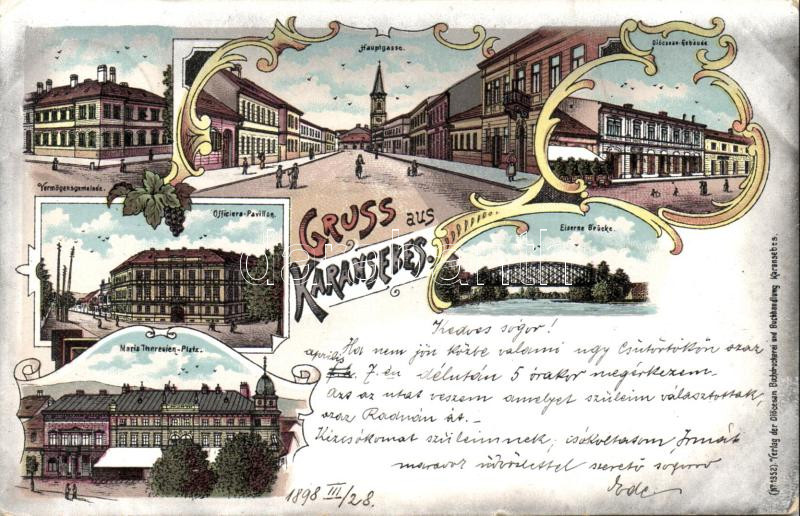 Hauptgasse.
Diöcesan-Gebäude
Vermögensgemeinde.
Officiers-Pavillon.
GRUSS aus
KARANSEBES.
Eiserne Brücke.
Maria Theresien-Platz.
Kedves sógor!
Ha nem jön közbe valami úgy Csütörtökön azaz
április 7.-én délután 5 órakor megérkezem.
Azt az utat veszem amelyet szüleim választottak,
azaz Radnán át.
Kézcsókomat szüleimnek, csókoltatom Irmát
maradok üdvözlettel szerető sógorod
1898 III/28.
(No 1352) Verlag der Diöcesan Buchdruckerei und Buchhandlung Karansebes.
darabanth